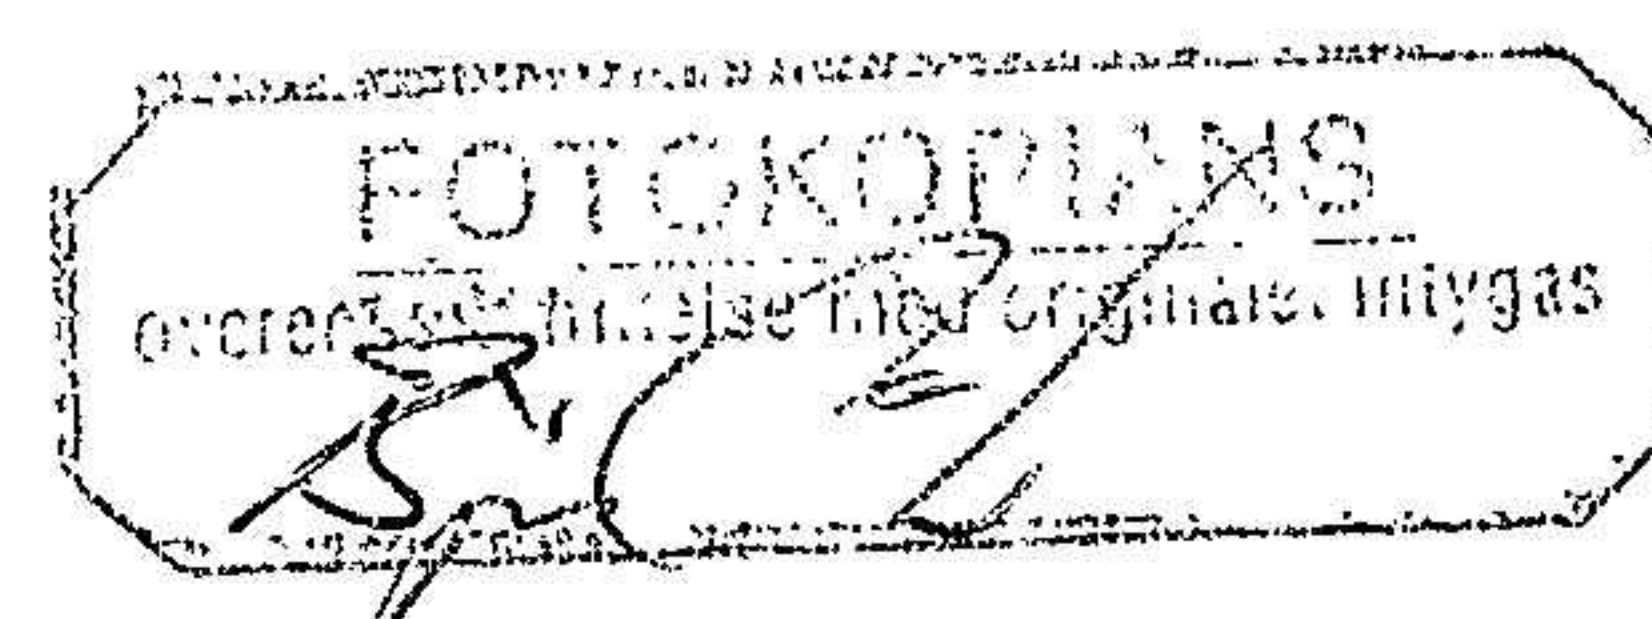 FOTOKOPIANS
överensstämmelse med originalet intygas